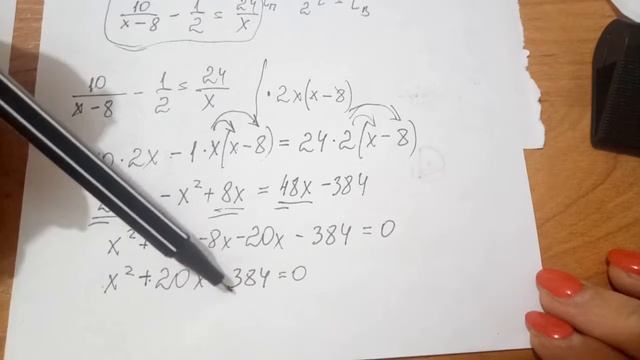 10/(x-8) - 1/2 = 24/x
10/(x-8) - 1/2 = 24/x | · 2x(x-8)
0 · 2x - 1 · x(x-8) = 24 · 2(x-8)
- x² + 8x = 48x - 384
x² + - 8x - 20x - 384 = 0
x² + 20x 384 = 0